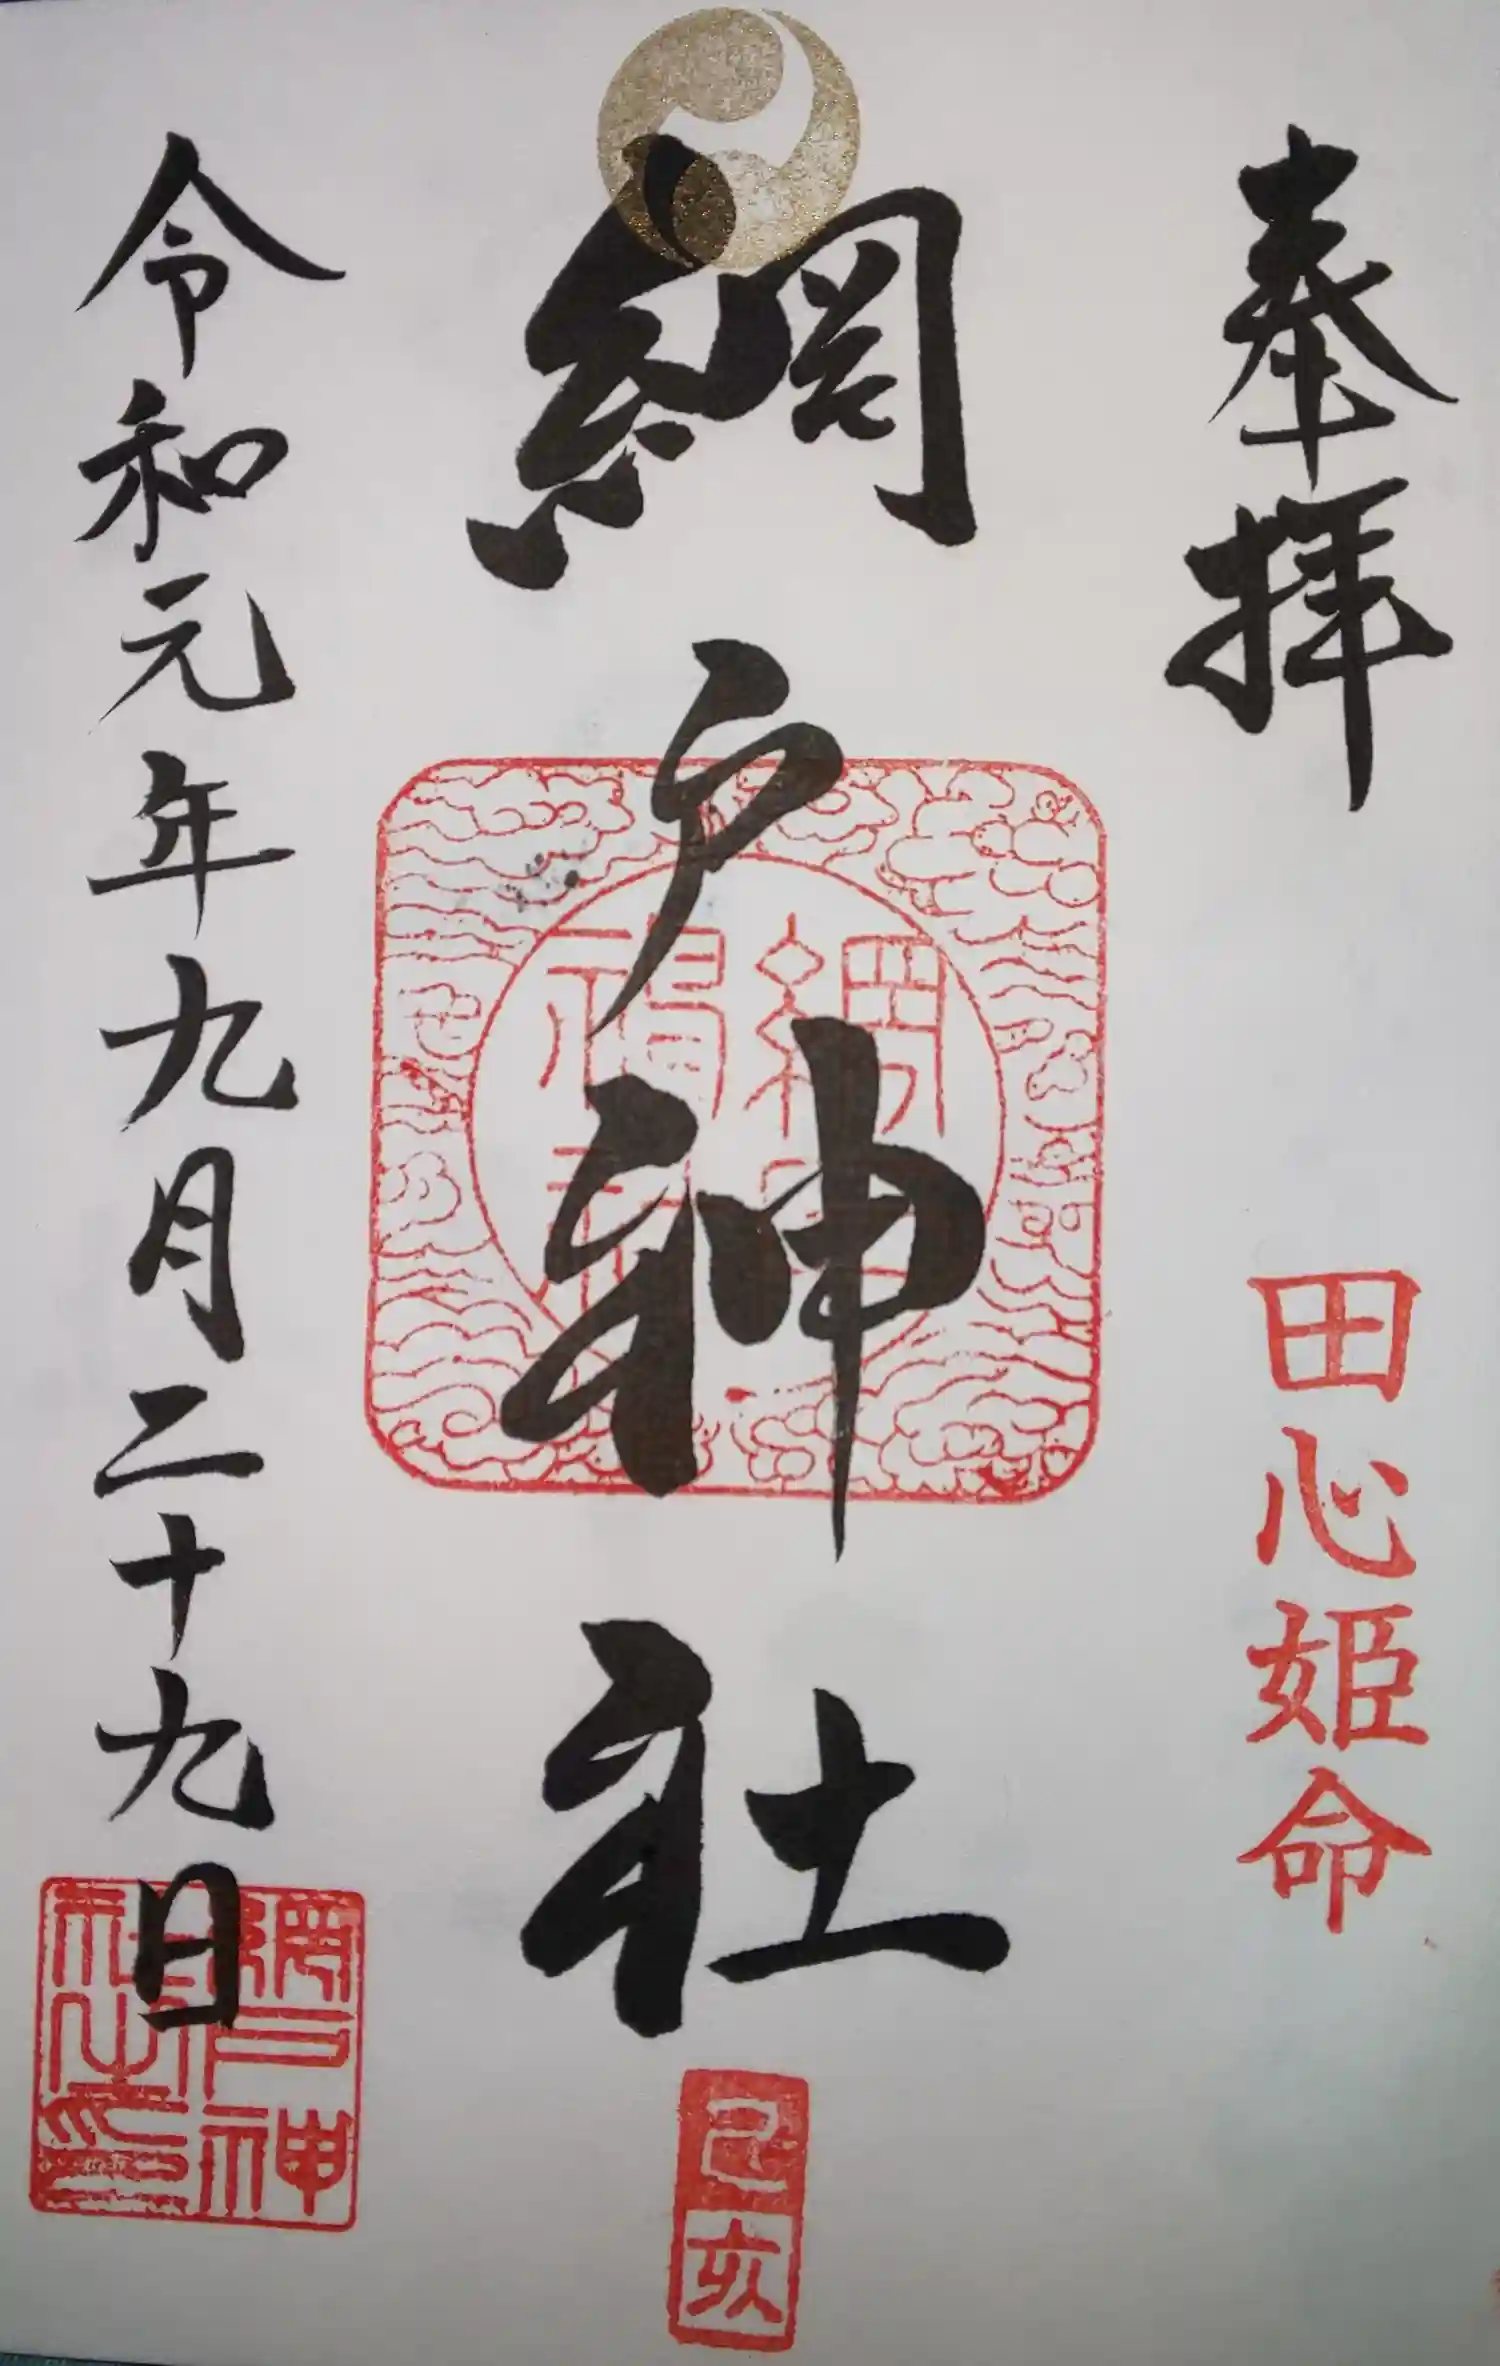 奉拝
田心姫命
網戸神社
己亥
令和元年九月二十九日
網戸神
社之印